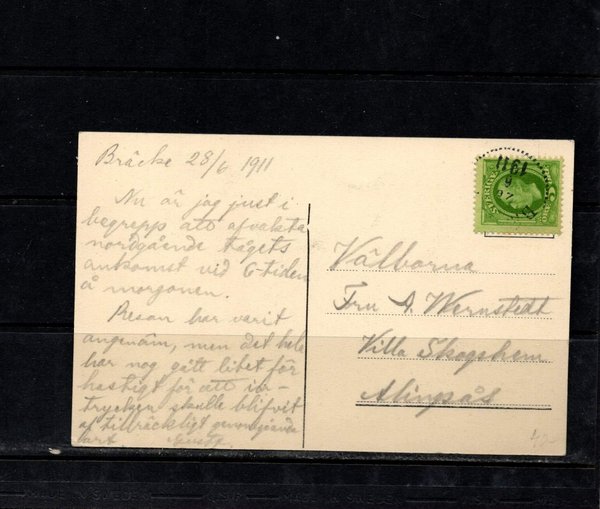 Bräcke 28/6 1911
Nu är jag just i
begrepp att afvakta
nordgående tågets
ankomst vid 6-tiden
å morgonen.
Resan har varit
angenäm, men det hela
har nog gått litet för
hastigt för att in-
trycken skulle blifvit
af tillräckligt genomgående
art. Gustaf.
SVERIGE
1911
Välborna
Fru A. Wernstedt
Villa Skogshem
Alingsås